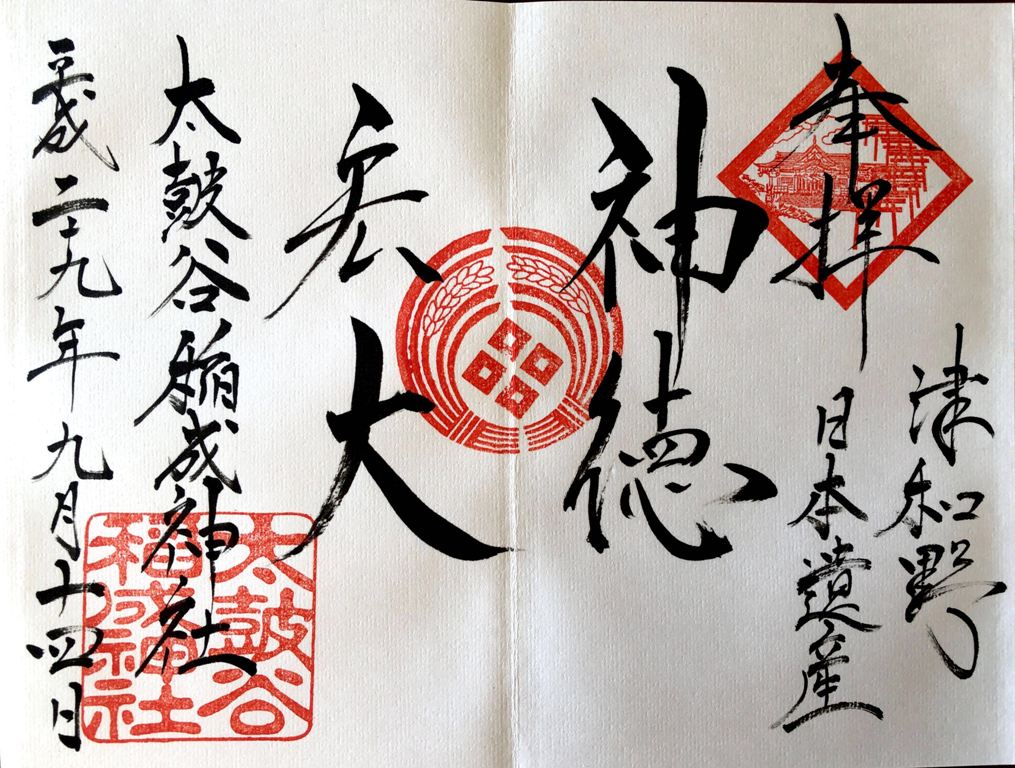 奉拝
津和野
日本遺産
神徳
宏大
太皷谷稲成神社
平成二十九年九月十四日
太皷谷
稲成神社